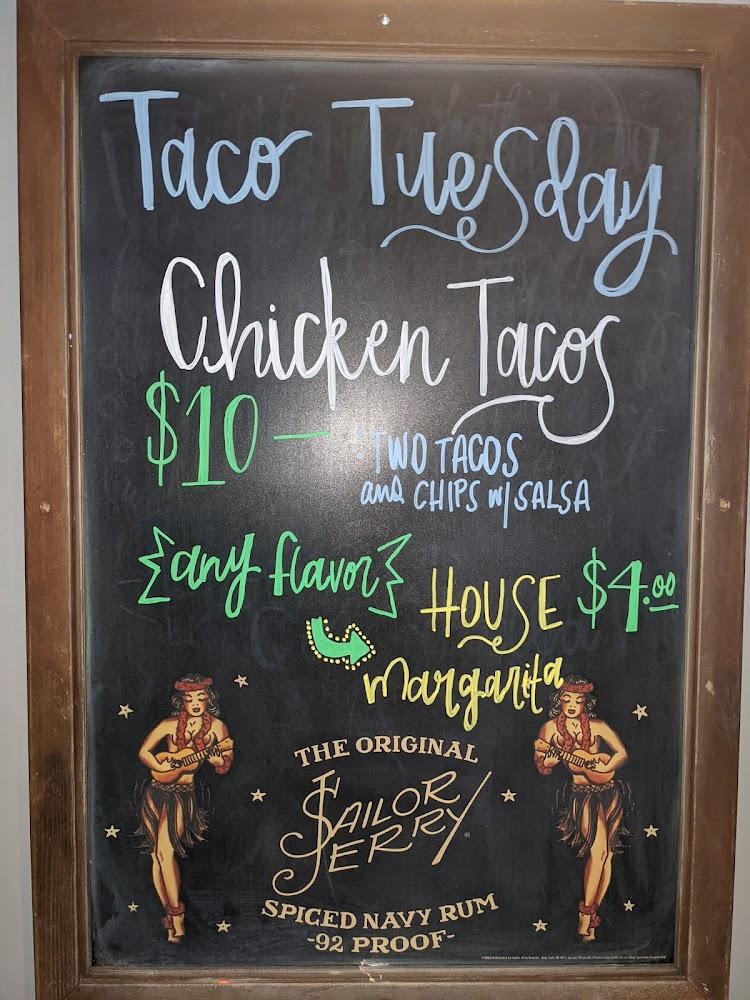 Taco Tuesday
Chicken Tacos
$10 — : TWO TACOS
and CHIPS w/ SALSA
{any flavor}
HOUSE $4.00
margarita
THE ORIGINAL
SAILOR
JERRY®
SPICED NAVY RUM
-92 PROOF-